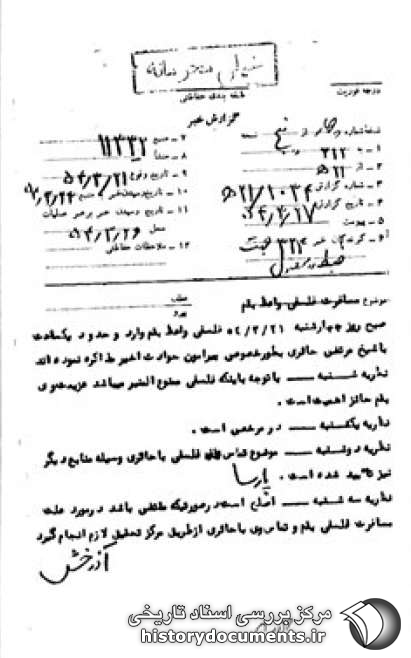 خیلی محرمانه
درجه فوریت
طبقه بندی حفاظتی
گزارش خبر
نسخه شماره
۱ - به ۳۱۲
۲ - از ۲۱ ه‍
۳ - شماره گزارش ۲۱/۱۰۳۴ ه‍
۴ - تاریخ گزارش ۵۴/۴/۱۷
۵ - پیوست
۶ - گیرندگان خبر ۳۲۴ جهت
۷ - منبع ۱۱۳۳۲
۸ - منشأ
۹ - تاریخ وقوع ۵۴/۳/۲۱
۱۰ - تاریخ رسیدن خبر به منبع ۵۴/۳/۲۴
۱۱ - تاریخ رسیدن خبر به رهبر عملیات
محل ۵۴/۳/۲۶
۱۲ - ملاحظات حفاظتی
موضوع مسافرت فلسفی واعظ بقم
صبح روز چهارشنبه ۵۴/۳/۲۱ فلسفی واعظ بقم وارد و حدود یکساعت
با شیخ مرتضی حائری بطور خصوصی پیرامون حوادث اخیر مذاکره نموده اند
نظریه شنبه ـــ با توجه باینکه فلسفی ممنوع المنبر میباشد عزیمت وی
بقم حائز اهمیت است.
نظریه یکشنبه ـــ در مرخصی است.
نظریه دوشنبه ـــ موضوع تماس فلسفی با حائری وسیله منابع دیگر
نیز تائید شده است. پارسا
نظریه سه شنبه ـــ اصلح است در صورتیکه مقتضی باشد در مورد علت
مسافرت فلسفی بقم و تماس وی با حائری از طریق مرکز تحقیق لازم انجام گیرد
آذرخش
مرکز بررسی اسناد تاریخی
historydocuments.ir